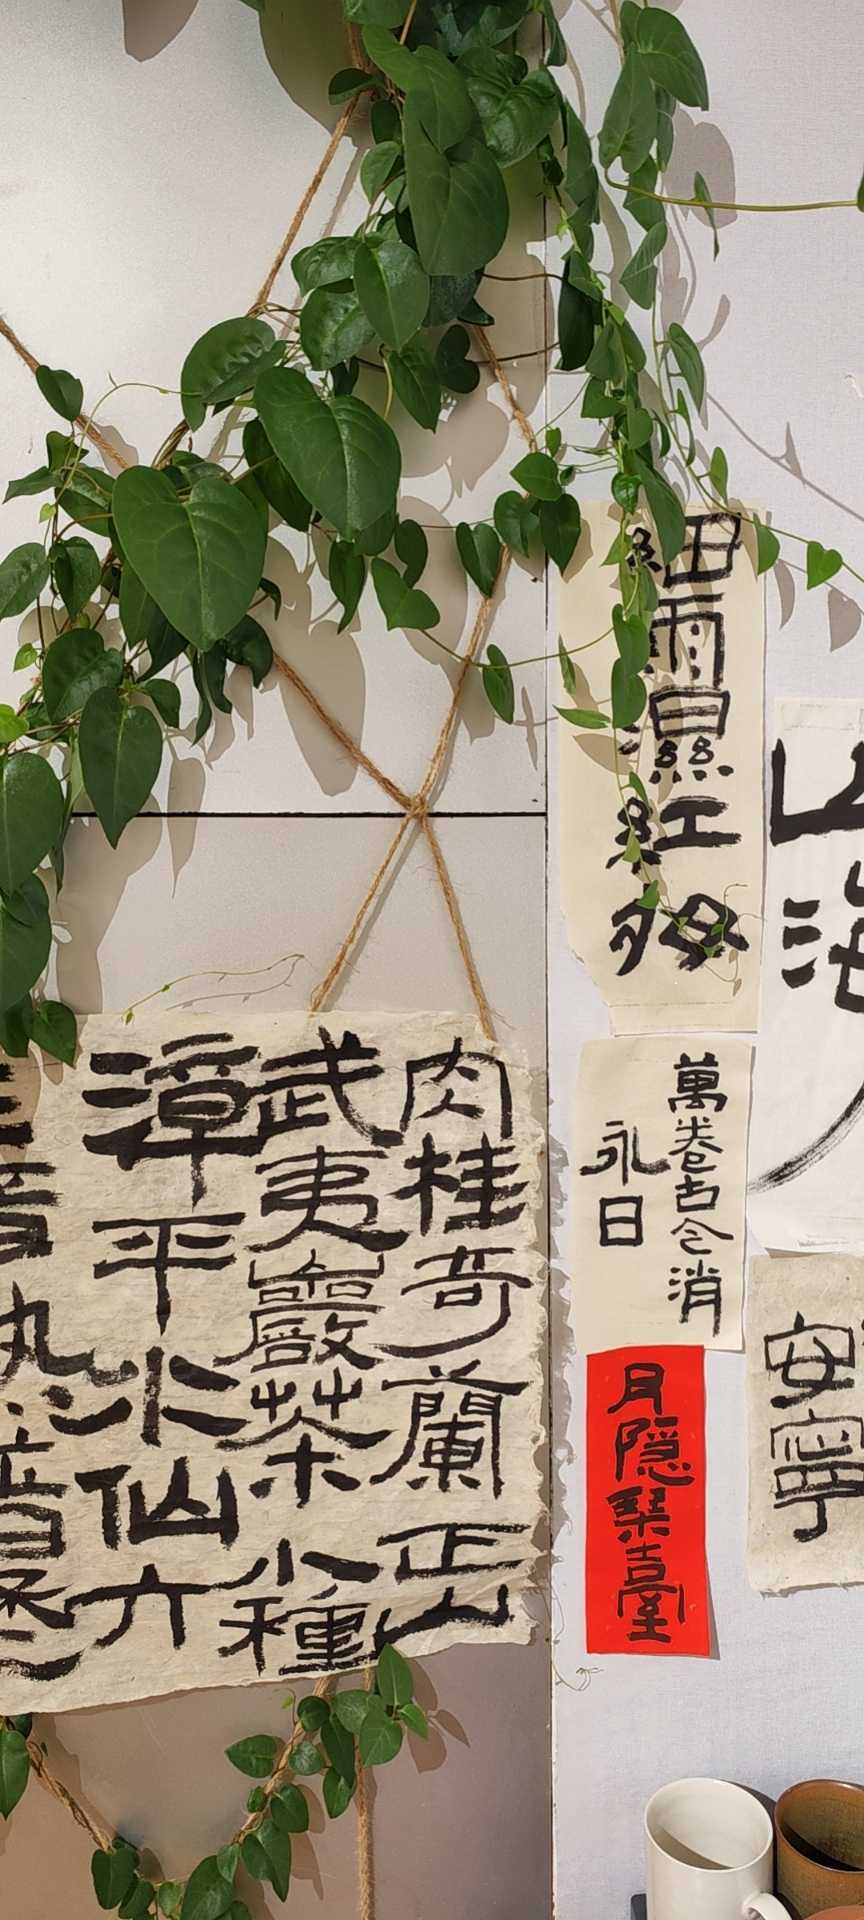 山海
安寧
細雨濕紅
萬卷古今消
永日
月隐琴臺
肉桂奇蘭正山
武夷巖茶小種
漳平水仙六
普熟普